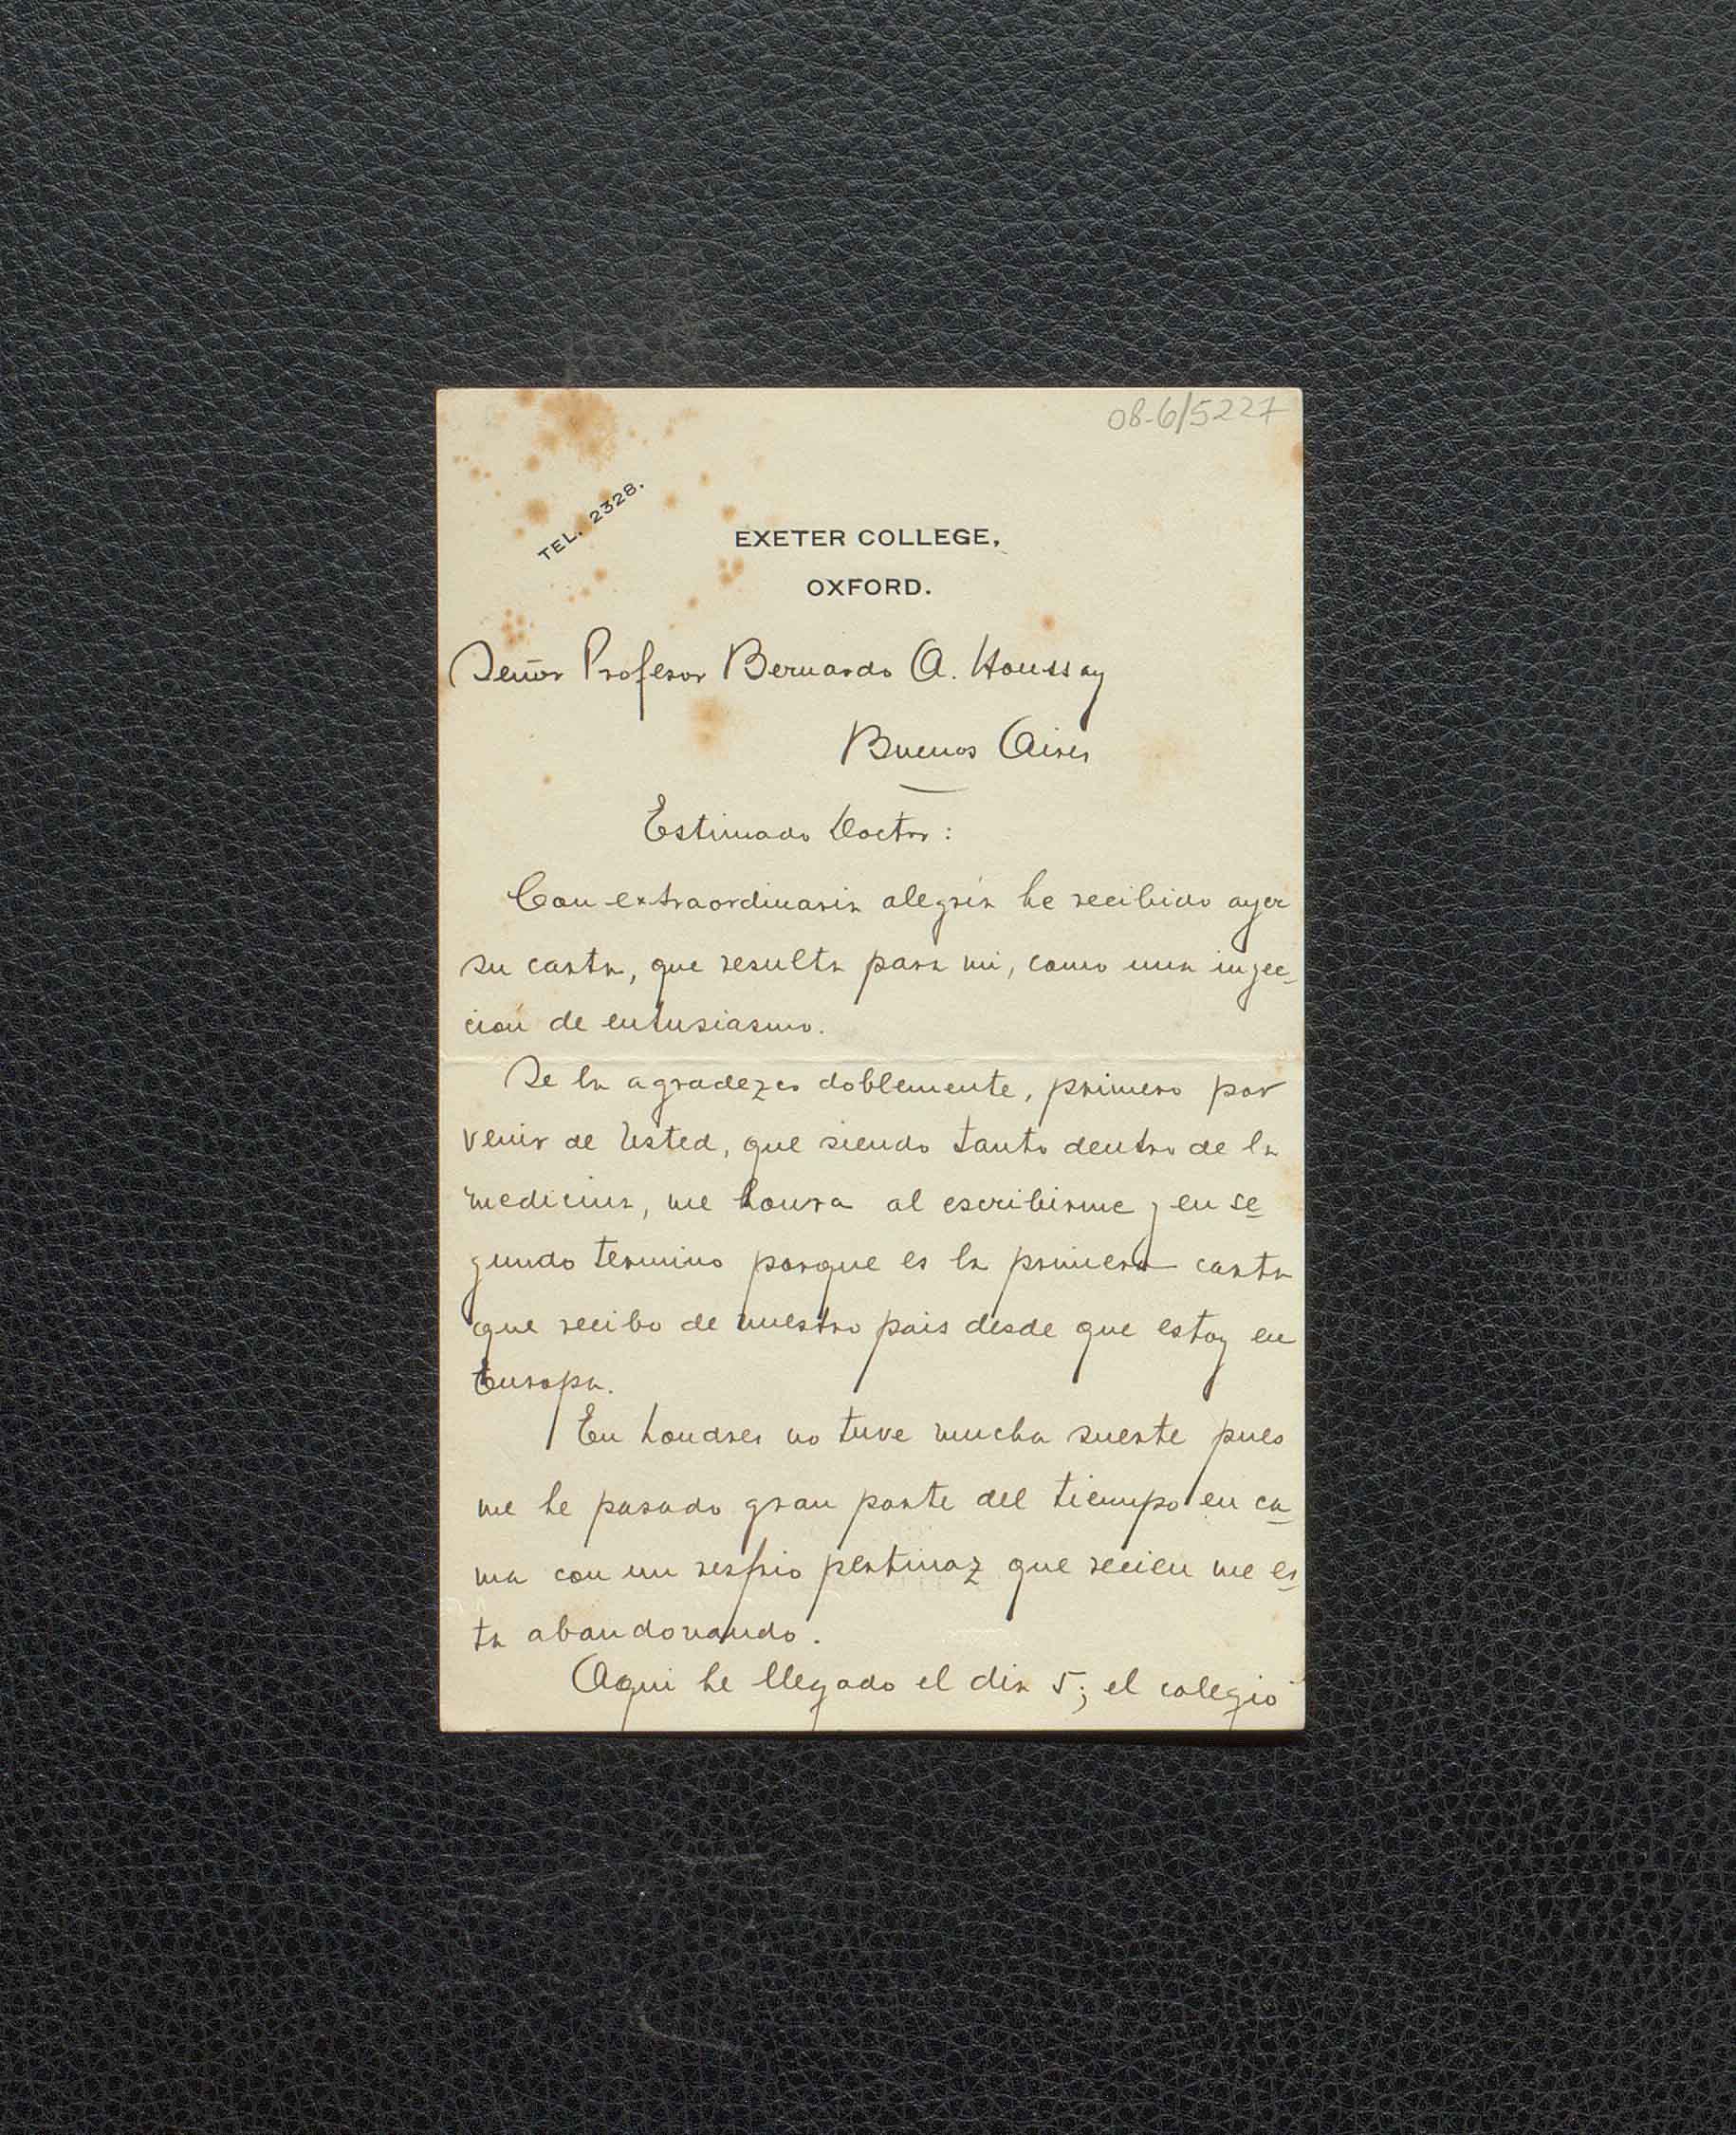 08-6/5227
TEL. 2328.
EXETER COLLEGE,
OXFORD.
Señor Profesor Bernardo A. Houssay
Buenos Aires
Estimado Doctor:
Con extraordinaria alegría he recibido ayer
su carta, que resulta para mi, como una injec-
ción de entusiasmo.
Se la agradezco doblemente, primero por
venir de Usted, que siendo tanto dentro de la
medicina, me honra al escribirme y en se-
gundo termino porque es la primera carta
que recibo de nuestro pais desde que estoy en
Europa.
En Londres no tuve mucha suerte pues
me he pasado gran parte del tiempo en ca-
ma con un resfrio pertinaz que recien me es-
ta abandonando.
Aqui he llegado el dia 5; el colegio